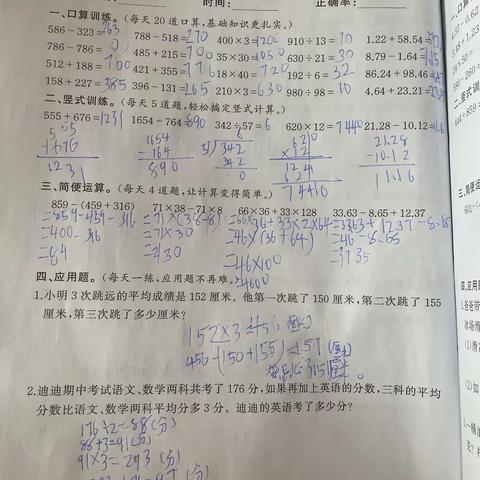 时间: 正确率:
一、口算训练。(每天20道口算,基础知识更扎实。)
586－323＝263 518－248＝270 400×3＝1200 910÷13＝70 1.22＋58.54＝
786－786＝0 485＋215＝700 35×30＝1050 630÷21＝30 8.79－1.64＝
512＋188＝700 421＋355＝776 18×40＝720 192÷6＝32 86.24＋98.46＝
158＋227＝385 396－131＝265 210×3＝630 980÷98＝10 4.64＋23.21＝
二、竖式训练。(每天5道题,轻松搞定竖式计算。)
555＋676＝1231 1654－764＝890 342÷57＝6 620×12＝7440 21.28－10.12＝
555 1654 6 620 21.28
＋676 －764 342 ×12 －10.12
1231 890 342 124 11.16
0 62
7440
三、简便运算。(每天4道题,让计算变得简单。)
859－(459＋316) 71×38－71×8 66×36＋33×128 33.63－8.65＋12.37
＝859－459－316 ＝71×(38－8) ＝66×36＋33×2×64
＝400－316 ＝71×30 ＝46－8.65
＝84 ＝37.35
四、应用题。(每天一练,应用题不再难。)
1.小明3次跳远的平均成绩是152厘米。他第一次跳了150厘米,第二次跳了155
厘米,第三次跳了多少厘米?
152×3＝456(厘米)
456－(150＋155)＝151(厘米)
2.迪迪期中考试语文、数学两科共考了176分,如果再加上英语的分数,三科的平均
分数比语文、数学两科平均分多3分。迪迪的英语考了多少分?
176÷2＝88(分)
88＋3＝91(分)
91×3＝273(分)